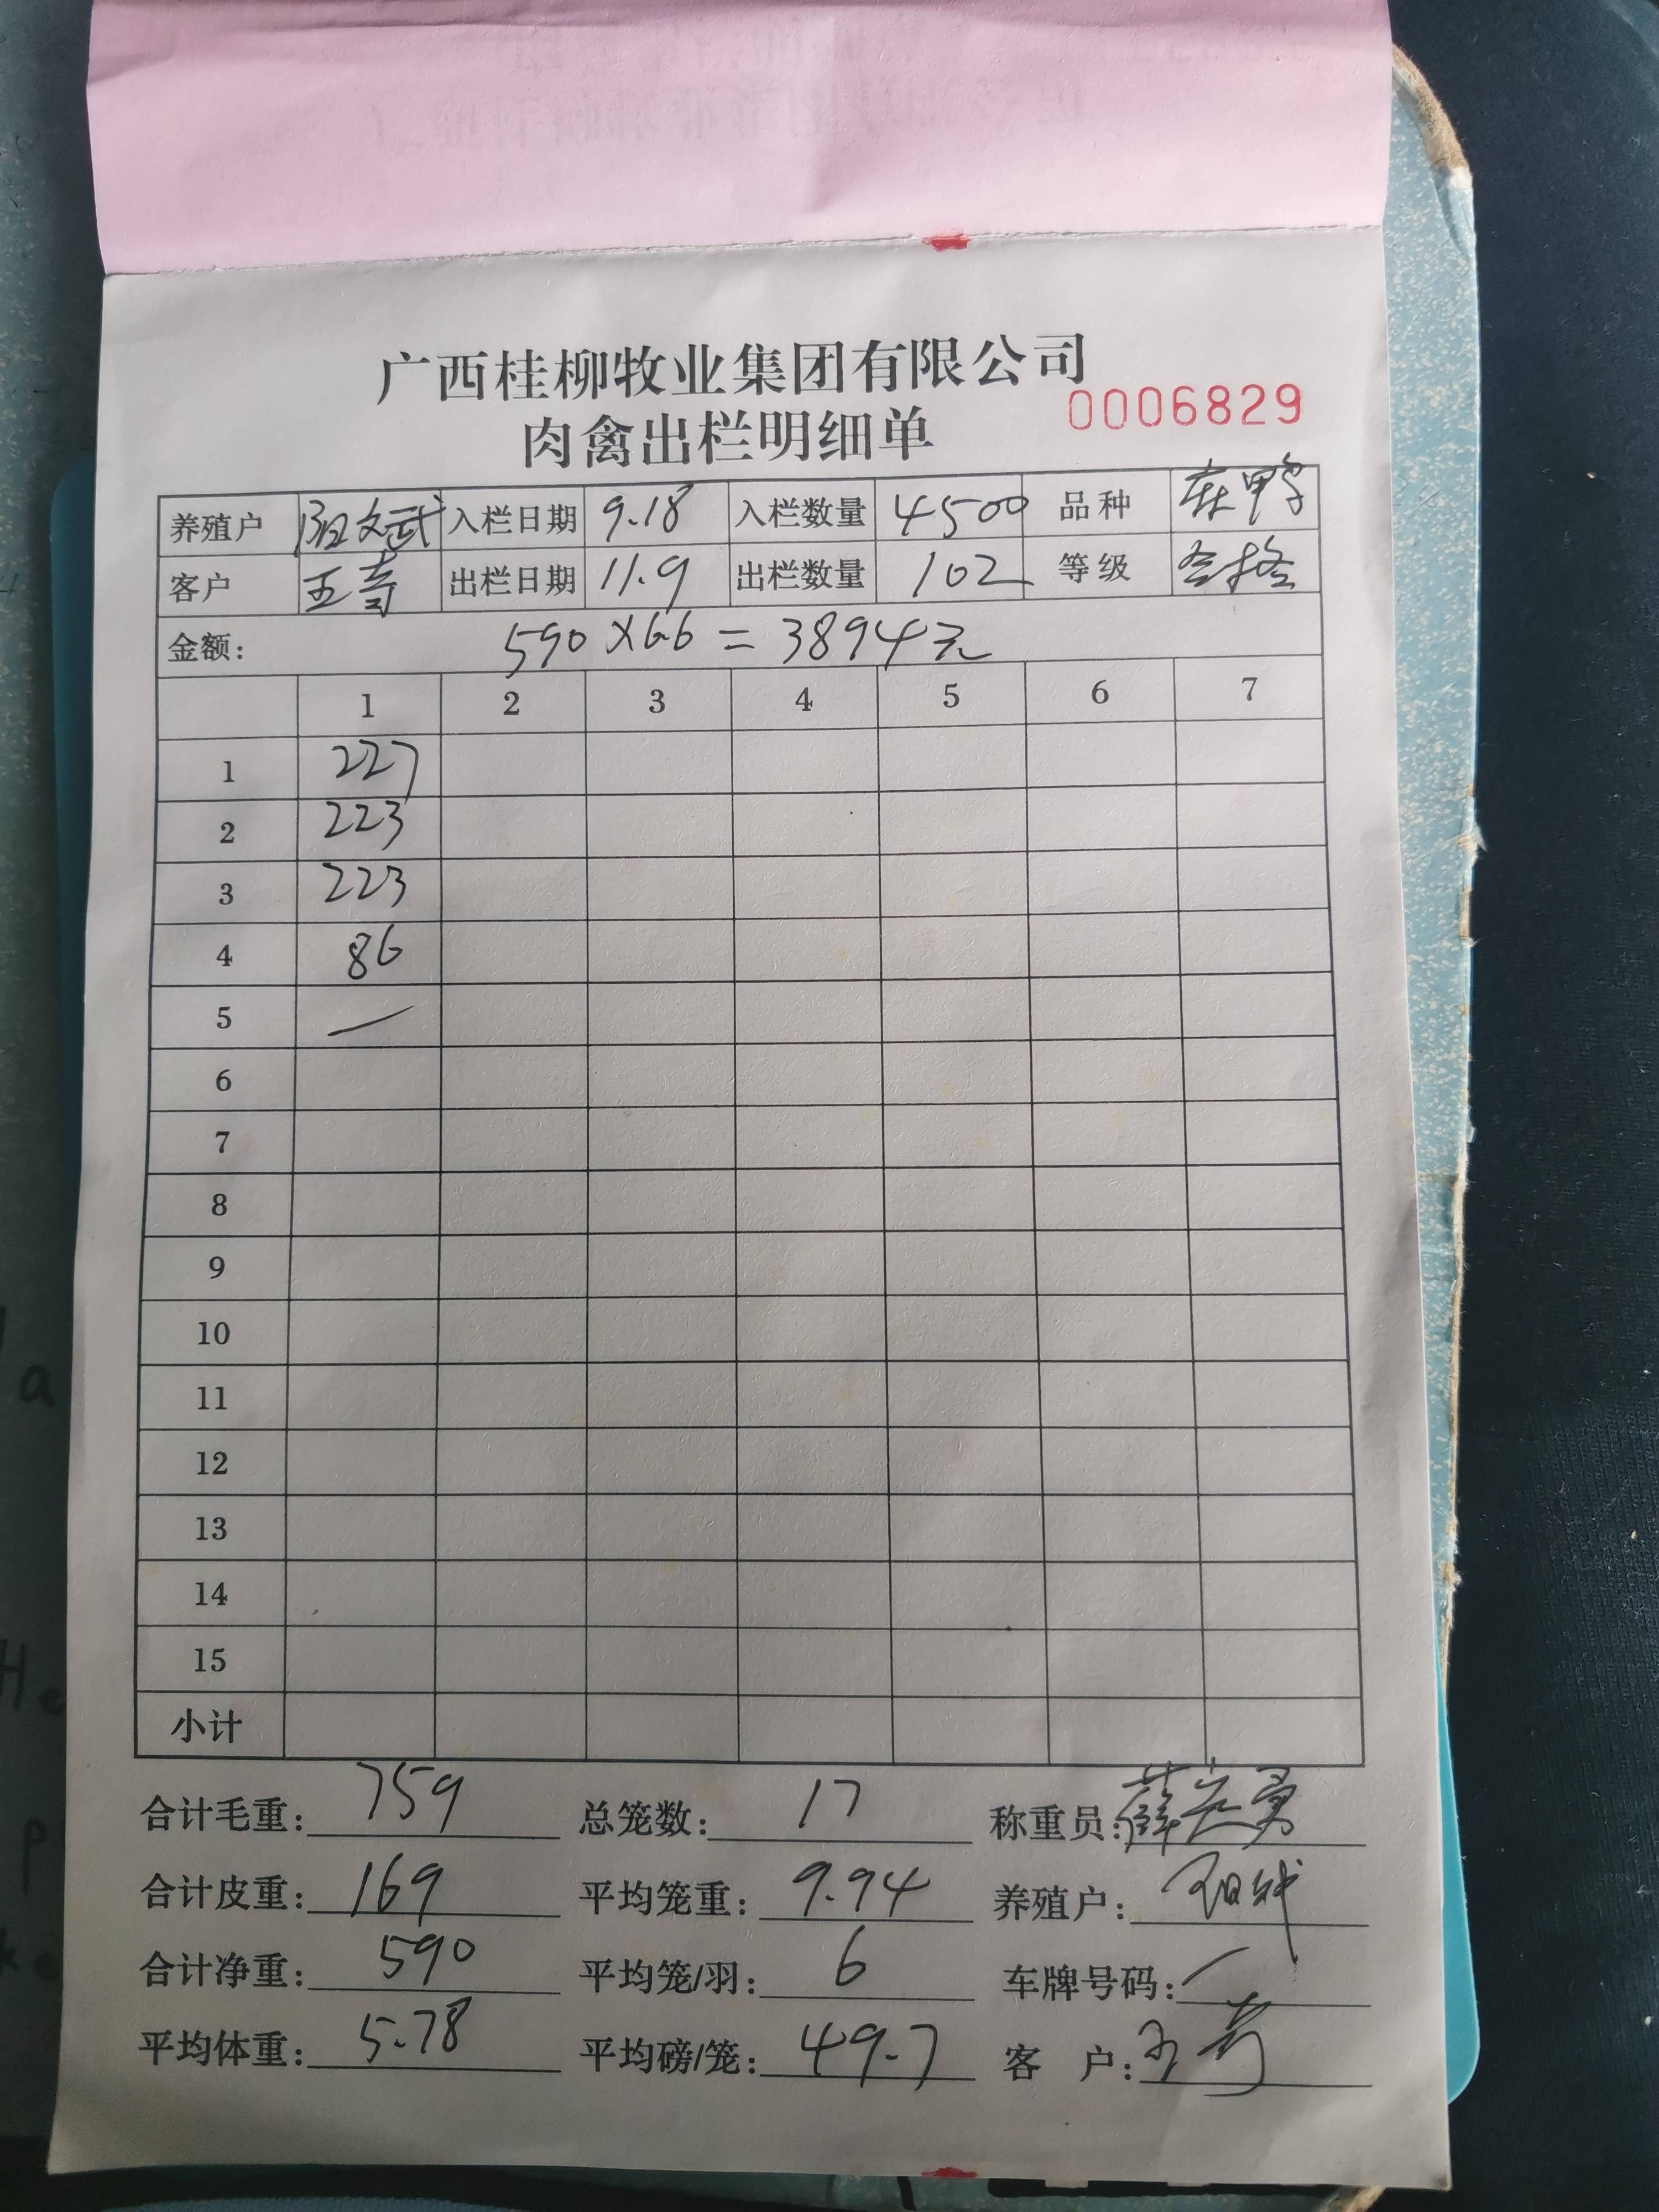 广西桂柳牧业集团有限公司
肉禽出栏明细单 0006829
养殖户 阳文武 入栏日期 9.18 入栏数量 4500 品种
客户 王 出栏日期 11.9 出栏数量 102 等级 合格
金额: 590×6.6=3894元
1 2 3 4 5 6 7
1 227
2 223
3 223
4 86
5 —
6
7
8
9
10
11
12
13
14
15
小计
合计毛重: 759 总笼数: 17 称重员: 薛
合计皮重: 169 平均笼重: 9.94 养殖户:
合计净重: 590 平均笼/羽: 6 车牌号码:
平均体重: 5.78 平均磅/笼: 49.7 客户: 王